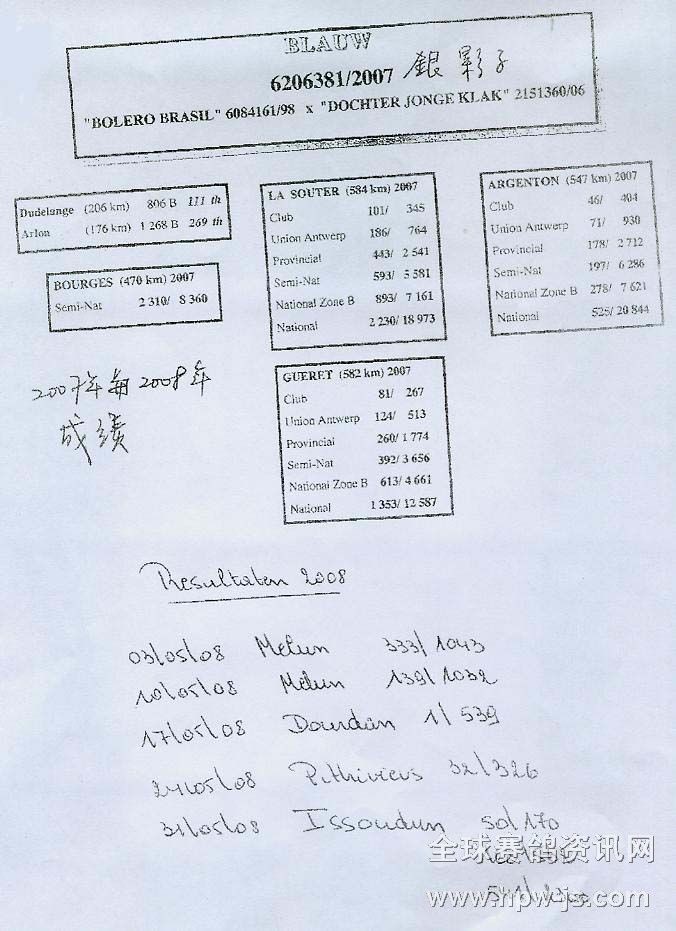 BLAUW
6206381/2007 銀影子
"BOLERO BRASIL" 6084161/98 x "DOCHTER JONGE KLAK" 2151360/06
Dudelange (206 km) 806 B 111 th
Arlon (176 km) 1 268 B 269 th
BOURGES (470 km) 2007
Semi-Nat 2 310/ 8 360
LA SOUTER (584 km) 2007
Club 101/ 345
Union Antwerp 186/ 764
Provincial 443/ 2 541
Semi-Nat 593/ 5 581
National Zone B 893/ 7 161
National 2 230/ 18 973
ARGENTON (547 km) 2007
Club 46/ 404
Union Antwerp 71/ 930
Provincial 178/ 2 712
Semi-Nat 197/ 6 286
National Zone B 278/ 7 621
National 525/ 20 844
GUERET (582 km) 2007
Club 81/ 267
Union Antwerp 124/ 513
Provincial 260/ 1 774
Semi-Nat 392/ 3 656
National Zone B 613/ 4 661
National 1 353/ 12 587
2007年每2008年
成績
Resultaten 2008
03/05/08 Melun 333/1043
10/05/08 Melun 139/1032
17/05/08 Dourdan 1/539
24/05/08 Pithiviers 32/326
31/05/08 Issoudun 50/170
全球赛鸽资讯网
www.npwjs.com